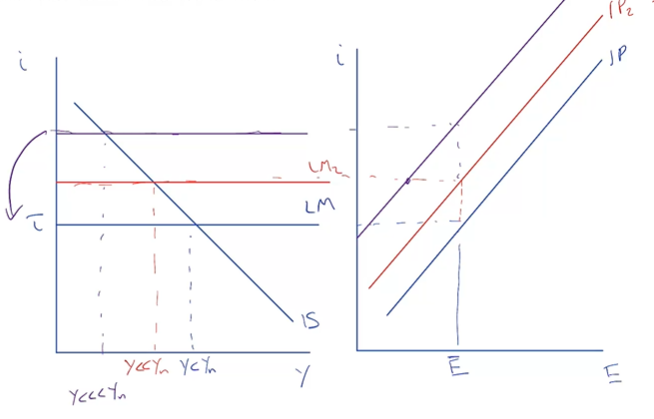 i
LM₂
LM
ī
IS
Y<<Yₙ
Y<Yₙ
Y
Y<<<Yₙ
i
IP₂
IP
Ē
E